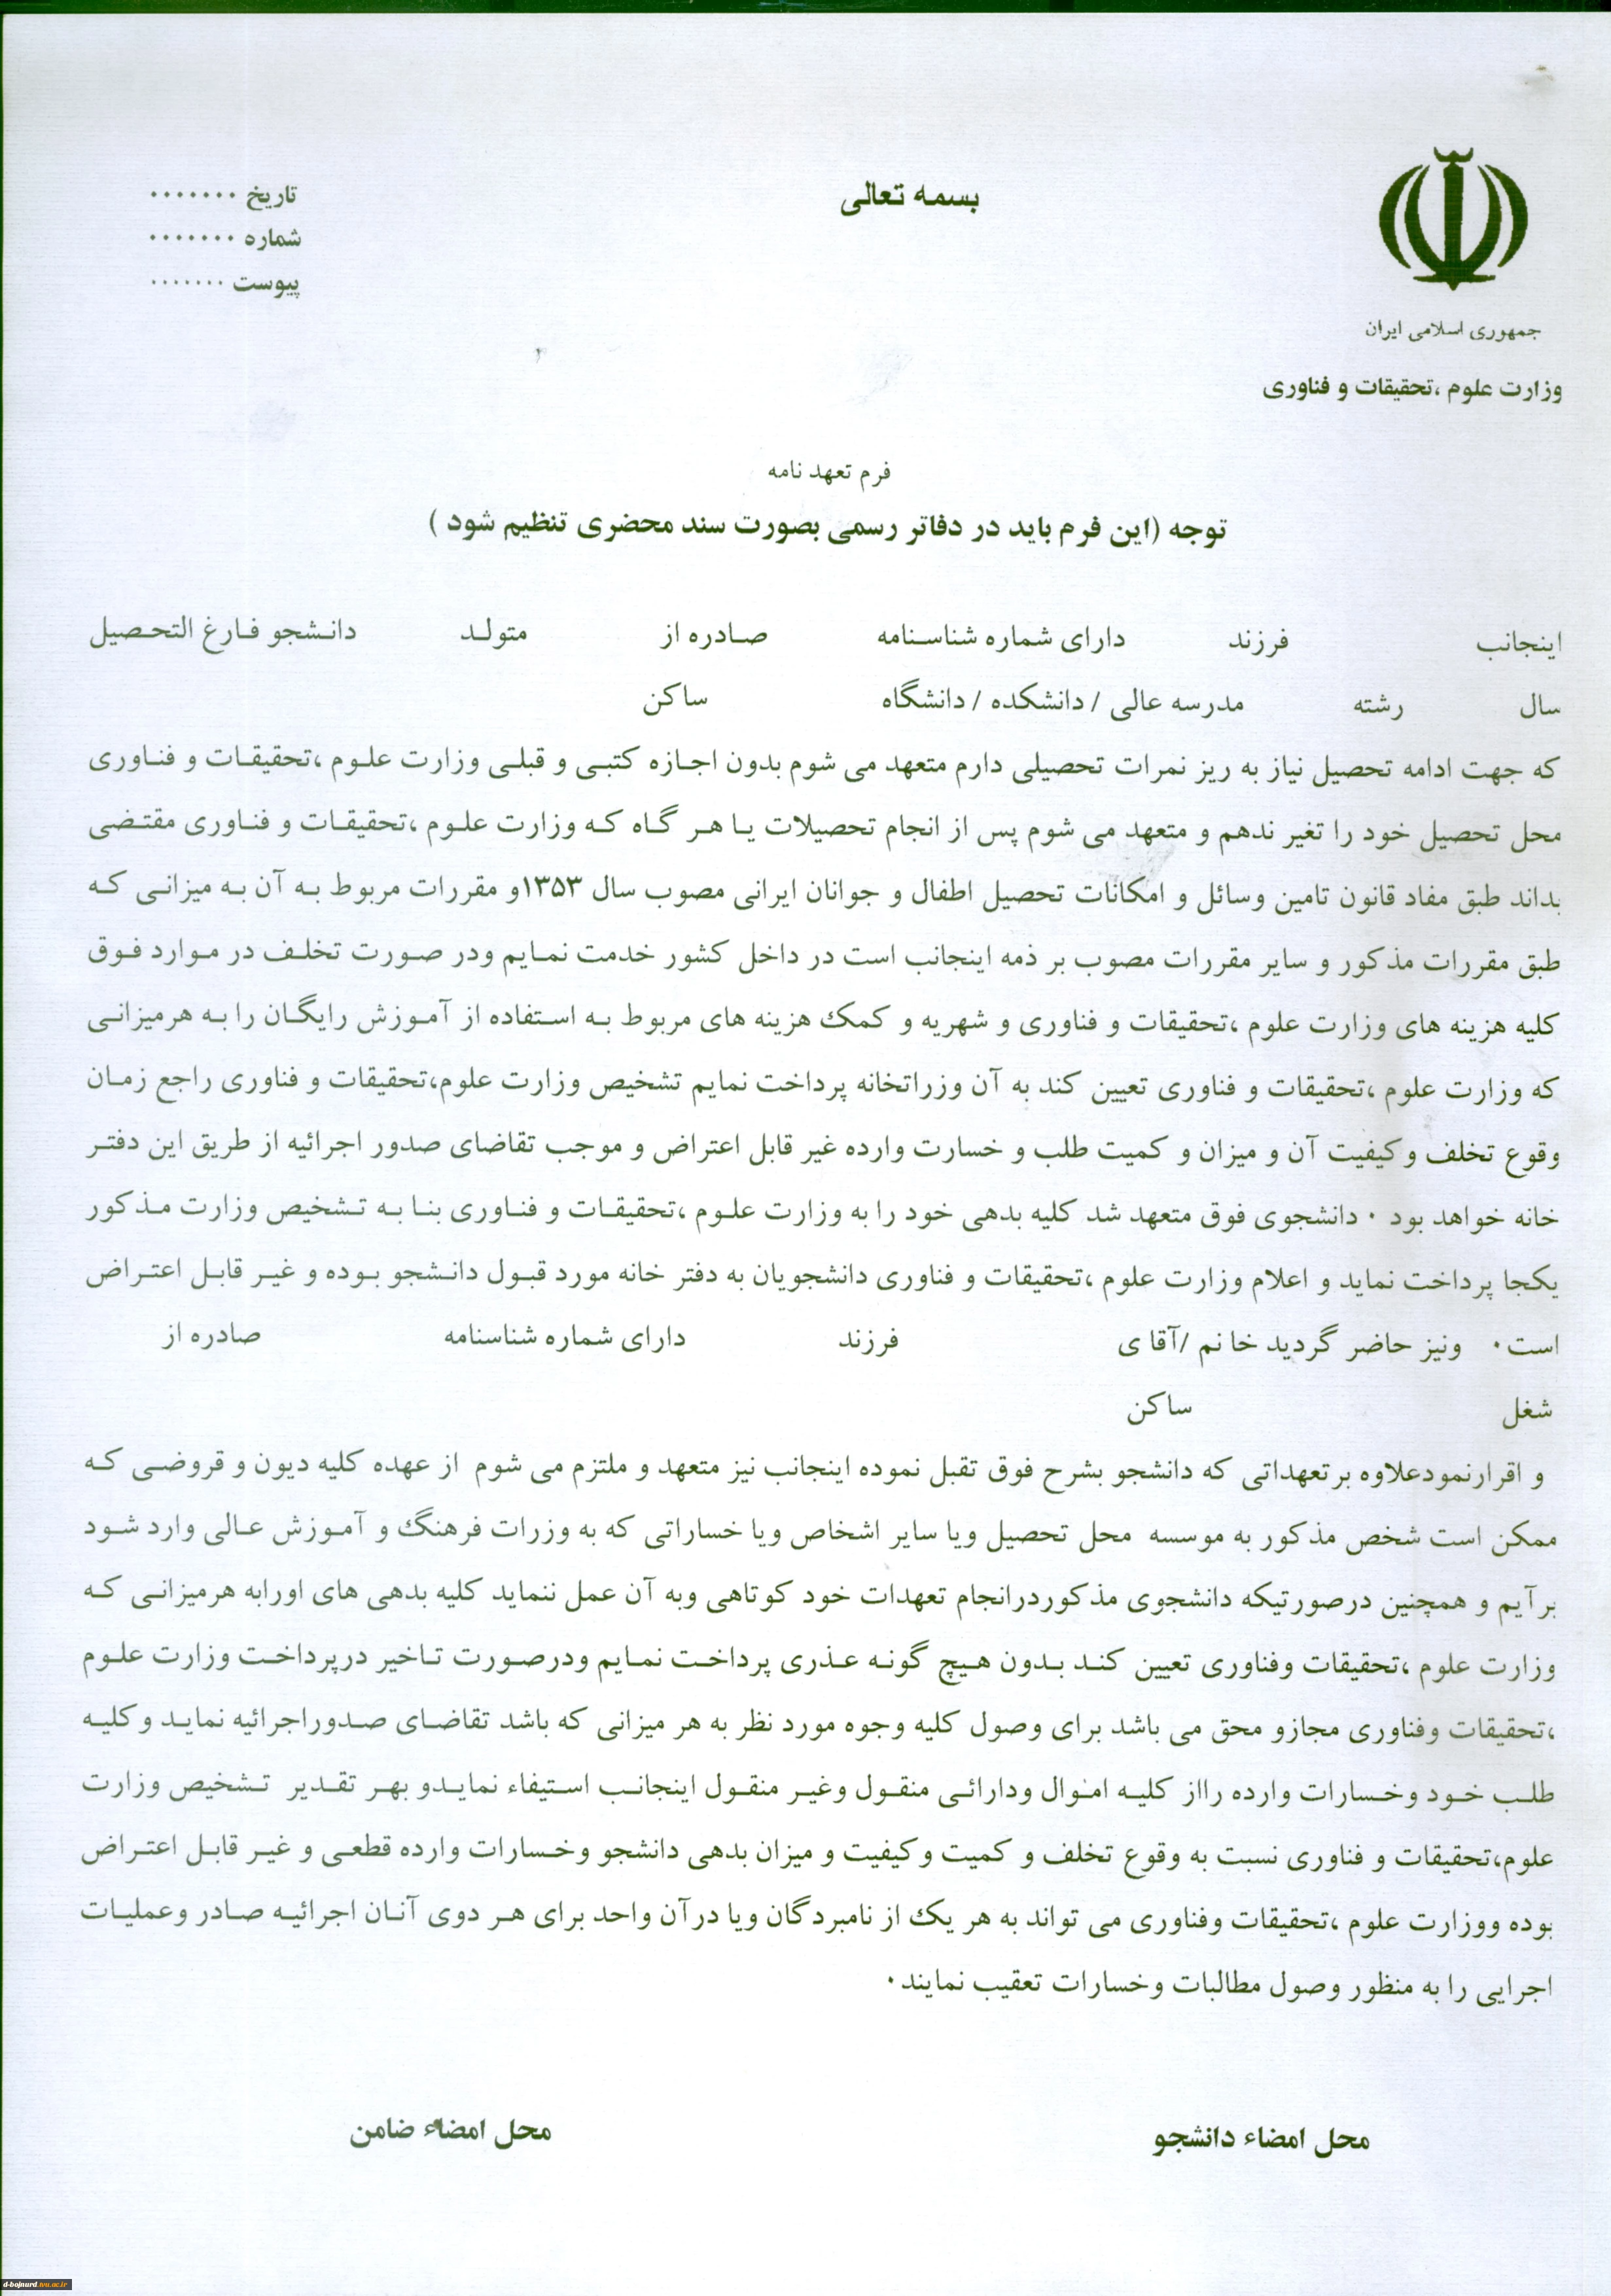 بسمه تعالی
تاریخ ۰۰۰۰۰۰۰
شماره ۰۰۰۰۰۰۰
پیوست ۰۰۰۰۰۰۰
جمهوری اسلامی ایران
وزارت علوم ،تحقیقات و فناوری
فرم تعهد نامه
توجه (این فرم باید در دفاتر رسمی بصورت سند محضری تنظیم شود )
اینجانب فرزند دارای شماره شناسنامه صادره از متولد دانشجو فارغ التحصیل
سال رشته مدرسه عالی / دانشکده / دانشگاه ساکن
که جهت ادامه تحصیل نیاز به ریز نمرات تحصیلی دارم متعهد می شوم بدون اجازه کتبی و قبلی وزارت علوم ،تحقیقات و فناوری
محل تحصیل خود را تغیر ندهم و متعهد می شوم پس از انجام تحصیلات یا هر گاه که وزارت علوم ،تحقیقات و فناوری مقتضی
بداند طبق مفاد قانون تامین وسائل و امکانات تحصیل اطفال و جوانان ایرانی مصوب سال ۱۳۵۳و مقررات مربوط به آن به میزانی که
طبق مقررات مذکور و سایر مقررات مصوب بر ذمه اینجانب است در داخل کشور خدمت نمایم ودر صورت تخلف در موارد فوق
کلیه هزینه های وزارت علوم ،تحقیقات و فناوری و شهریه و کمک هزینه های مربوط به استفاده از آموزش رایگان را به هرمیزانی
که وزارت علوم ،تحقیقات و فناوری تعیین کند به آن وزراتخانه پرداخت نمایم تشخیص وزارت علوم،تحقیقات و فناوری راجع زمان
وقوع تخلف و کیفیت آن و میزان و کمیت طلب و خسارت وارده غیر قابل اعتراض و موجب تقاضای صدور اجرائیه از طریق این دفتر
خانه خواهد بود ۰ دانشجوی فوق متعهد شد کلیه بدهی خود را به وزارت علوم ،تحقیقات و فناوری بنا به تشخیص وزارت مذکور
یکجا پرداخت نماید و اعلام وزارت علوم ،تحقیقات و فناوری دانشجویان به دفتر خانه مورد قبول دانشجو بوده و غیر قابل اعتراض
است۰ ونیز حاضر گردید خانم /آقا ی فرزند دارای شماره شناسنامه صادره از
شغل ساکن
و اقرارنمودعلاوه برتعهداتی که دانشجو بشرح فوق تقبل نموده اینجانب نیز متعهد و ملتزم می شوم از عهده کلیه دیون و قروضی که
ممکن است شخص مذکور به موسسه محل تحصیل ویا سایر اشخاص ویا خساراتی که به وزرات فرهنگ و آموزش عالی وارد شود
برآیم و همچنین درصورتیکه دانشجوی مذکوردرانجام تعهدات خود کوتاهی وبه آن عمل ننماید کلیه بدهی های اورابه هرمیزانی که
وزارت علوم ،تحقیقات وفناوری تعیین کند بدون هیچ گونه عذری پرداخت نمایم ودرصورت تاخیر درپرداخت وزارت علوم
،تحقیقات وفناوری مجازو محق می باشد برای وصول کلیه وجوه مورد نظر به هر میزانی که باشد تقاضای صدوراجرائیه نماید وکلیه
طلب خود وخسارات وارده رااز کلیه اموال ودارائی منقول وغیر منقول اینجانب استیفاء نمایدو بهر تقدیر تشخیص وزارت
علوم،تحقیقات و فناوری نسبت به وقوع تخلف و کمیت وکیفیت و میزان بدهی دانشجو وخسارات وارده قطعی و غیر قابل اعتراض
بوده ووزارت علوم ،تحقیقات وفناوری می تواند به هر یک از نامبردگان ویا درآن واحد برای هر دوی آنان اجرائیه صادر وعملیات
اجرایی را به منظور وصول مطالبات وخسارات تعقیب نمایند۰
محل امضاء دانشجو محل امضاء ضامن
d-bojnurd.tvu.ac.ir